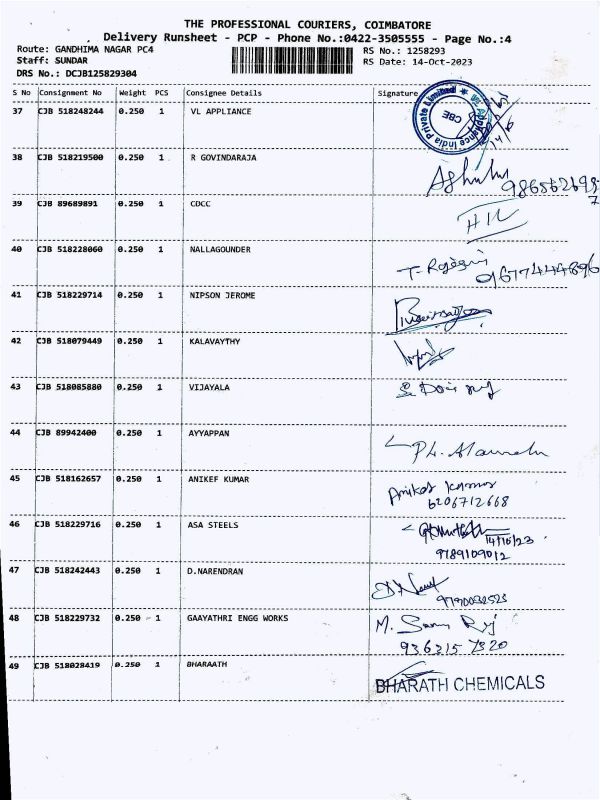 THE PROFESSIONAL COURIERS, COIMBATORE
Delivery Runsheet - PCP - Phone No.:0422-3505555 - Page No.:4
Route: GANDHIMA NAGAR PC4
RS No.: 1258293
Staff: SUNDAR
RS Date: 14-Oct-2023
DRS No.: DCJB125829304
S No Consignment No Weight PCS Consignee Details Signature
37 CJB 518248244 0.250 1 VL APPLIANCE
India Private Limited CBE
38 CJB 518219500 0.250 1 R GOVINDARAJA
39 CJB 89689891 0.250 1 CDCC
40 CJB 518228060 0.250 1 NALLAGOUNDER
41 CJB 518229714 0.250 1 NIPSON JEROME
42 CJB 518079449 0.250 1 KALAVAYTHY
43 CJB 518085880 0.250 1 VIJAYALA
44 CJB 89942400 0.250 1 AYYAPPAN
45 CJB 518162657 0.250 1 ANIKEF KUMAR
Aniket Kumar
6206712668
46 CJB 518229716 0.250 1 ASA STEELS
14/10/23
9789109012
47 CJB 518242443 0.250 1 D.NARENDRAN
9790032523
48 CJB 518229732 0.250 1 GAAYATHRI ENGG WORKS
936315 7320
49 CJB 518028419 0.250 1 BHARAATH
BHARATH CHEMICALS